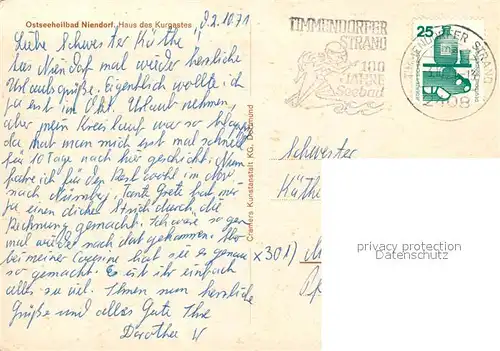 Ostseeheilbad Niendorf, Haus des Kurgastes
2.10.71
Liebe Schwester Käthe
Aus Niendorf mal wieder herzliche
Urlaubsgrüße. Eigentlich wollte ich
ja erst im Okt. Urlaub nehmen,
aber mein Kreislauf war so schlapp
da hat man mich erst mal schnell
für 10 Tage nach hier geschickt. Nun
habe ich für den Rest wohl im Nov
nach Nürnberg. Tante Grete hat mir
ja einen dicken Strich durch die
Rechnung gemacht. Ich wäre so gern
mal wieder nach dort gekommen. Aber
bei meiner Cousine hat sie es genau
so gemacht. Es ist ihr einfach
alles zu viel. Ihnen nun herzliche
Grüße und alles Gute Ihre
Dorothea W
Cramers Kunstanstalt KG, Dortmund
TIMMENDORFER
STRAND
100
JAHRE
Seebad
TIMMENDORFER STRAND
2408
25
Schwester
Käthe
x 301)
privacy protection
watermark